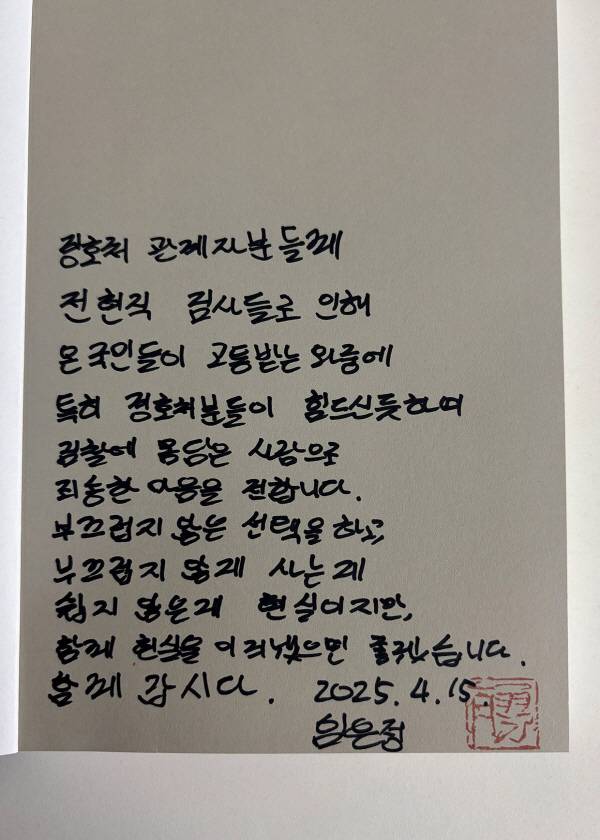 경호처 관계자분들께
전현직 검사들로 인해
온 국민들이 고통받는 와중에
특히 경호처분들이 힘드신듯하여
검찰에 몸담은 사람으로
죄송한 마음을 전합니다.
부끄럽지 않은 선택을 하고,
부끄럽지 않게 사는게
쉽지 않은게 현실이지만,
함께 현실을 이겨냈으면 좋겠습니다.
함께 갑시다. 2025.4.15.
임은정